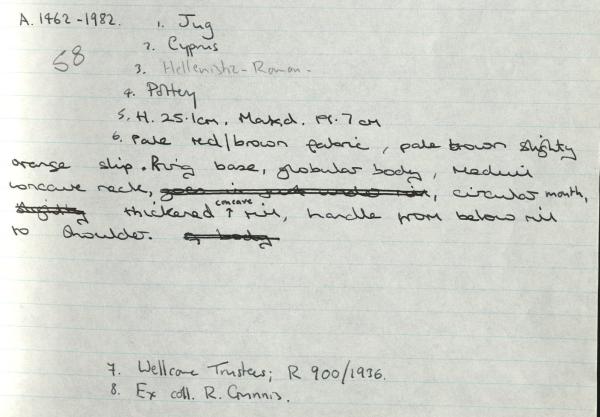 A.1462-1982. 1. Jug
58
2. Cyprus
3. Hellenistic-Roman-
4. Pottery
5. H. 25.1cm, Max.d. 19.7cm
6. Pale red/brown fabric, pale brown slighty
orange slip. Ring base, globular body, medium
concave neck, circular mouth,
concave
thickened ↑ rim, handle from below rim
to shoulder.
7. Wellcome Trustees; R 900/1936.
8. Ex coll. R. Gunnis.